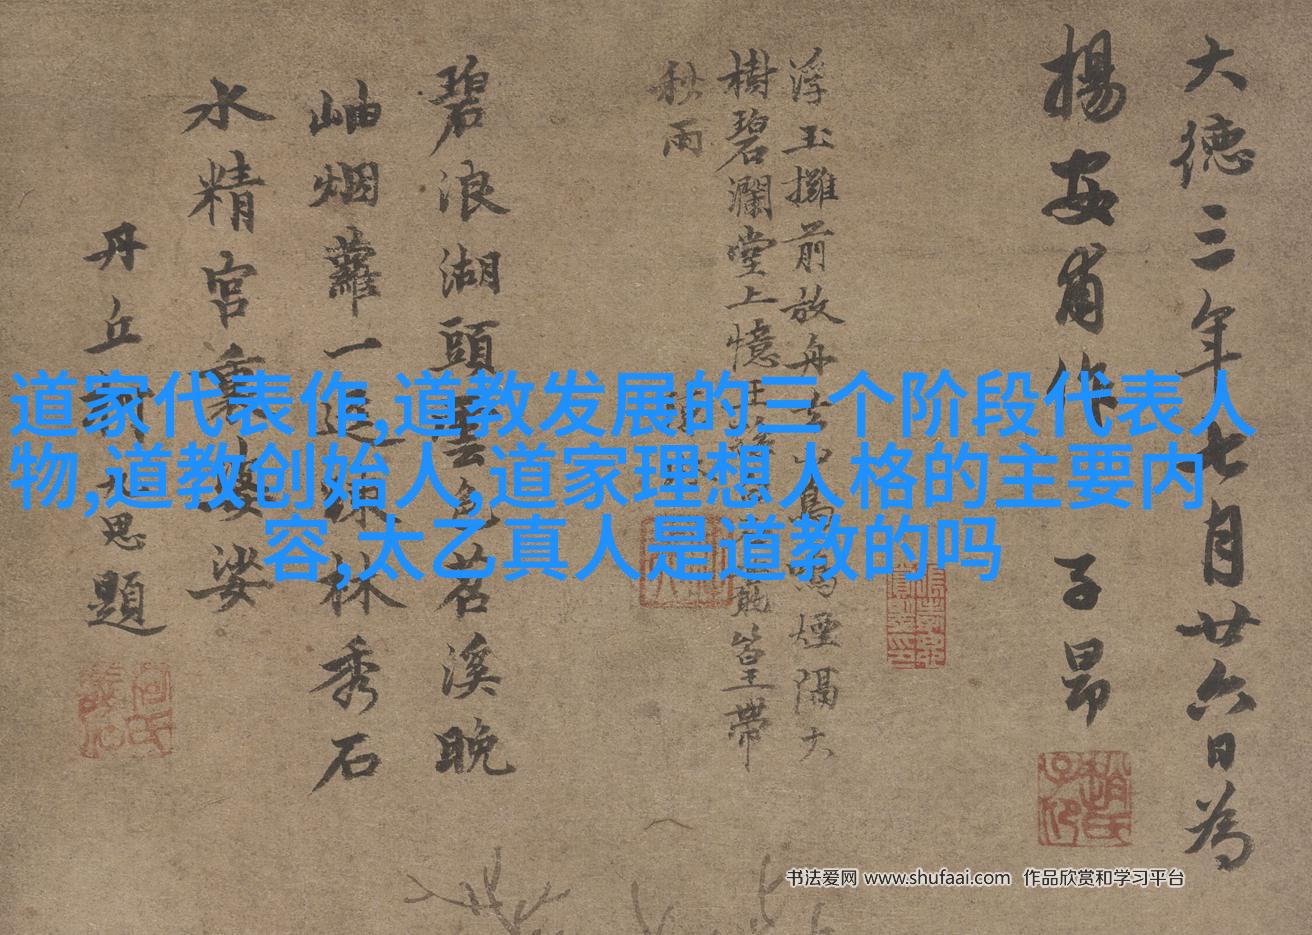 大德三年七月廿六日為
揚安甫作 子昂
浮玉攤前放舟去 鳥鳴煙隔大
樹碧瀾堂上憶王 篁帶
秋雨
碧浪湖頭雲色茗溪晚
岫烟蘿一逕疎林秀石
水精宮裏婆娑
丹丘柯九思題
道家代表作,道教发展的三个阶段代表人
物,道教创始人,道家理想人格的主要内
容,太乙真人是道教的吗
书法爱网 www.shufaai.com 作品欣赏和学习平台